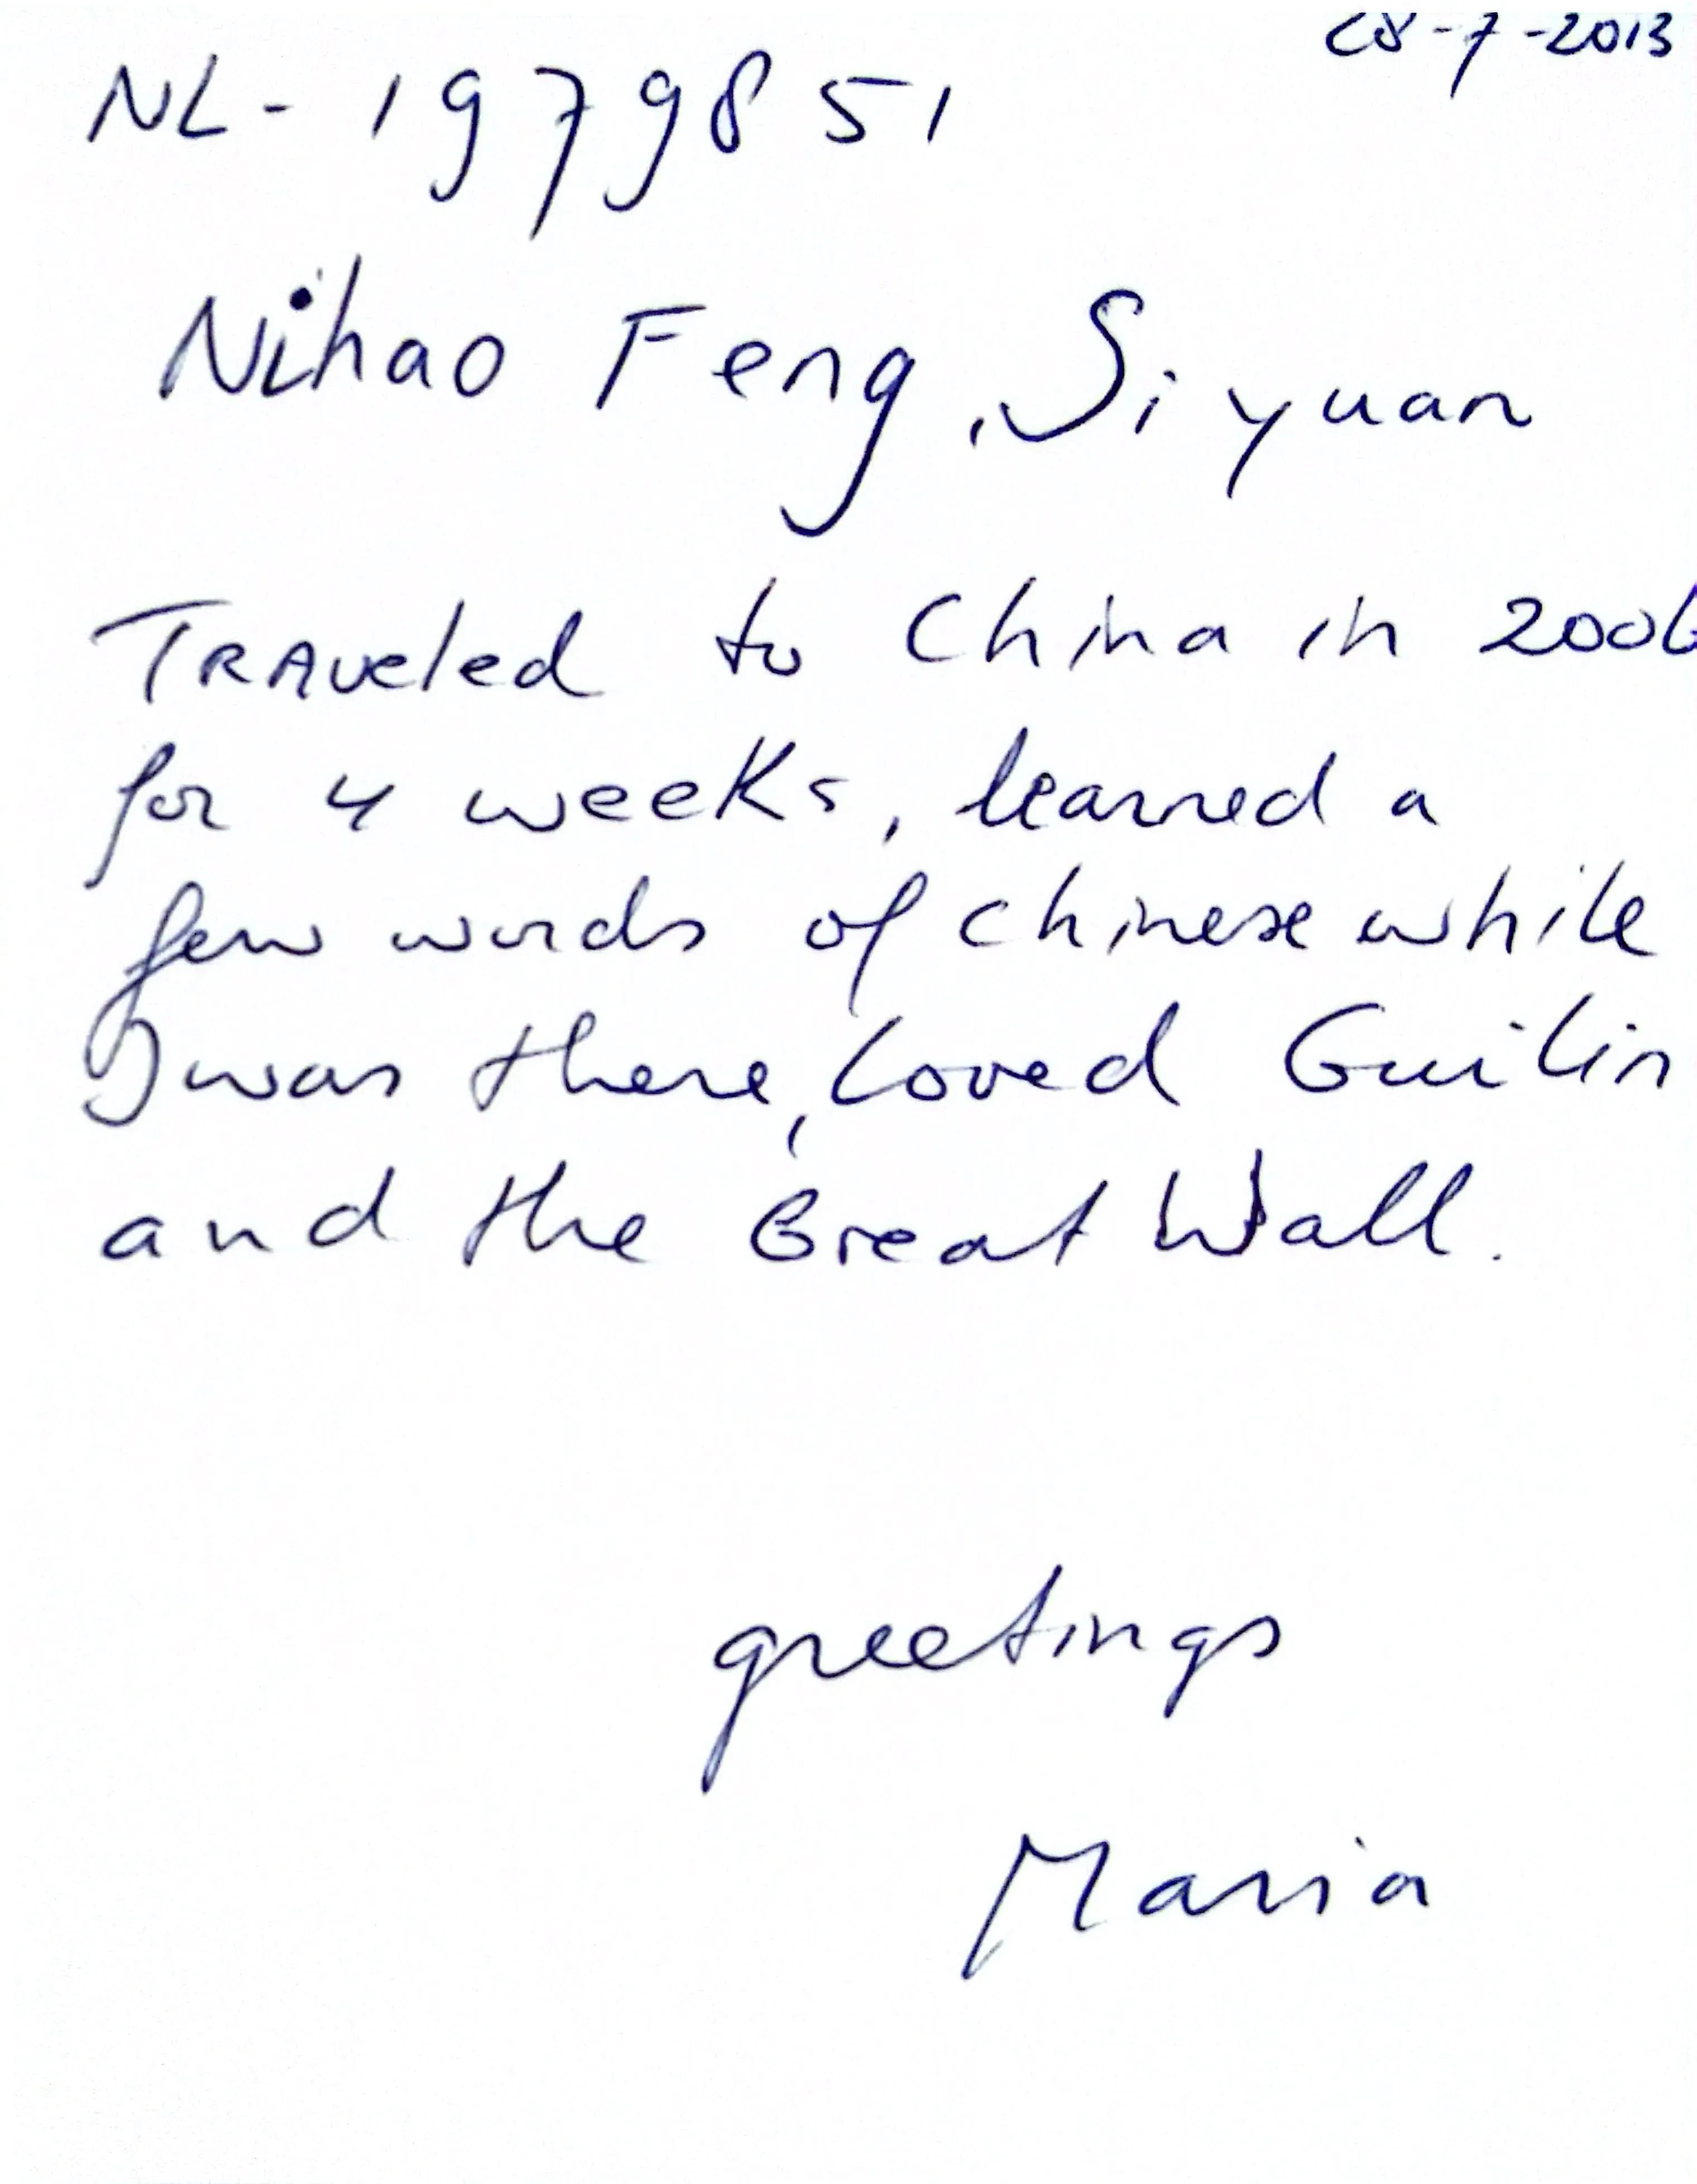 28-7-2013
NL-1979851
Nihao Feng, Siyuan
TRAveled to China in 2006
for 4 weeks, learned a
few words of chinese while
I was there, loved Guilin
and the Great Wall.
greetings
Maria